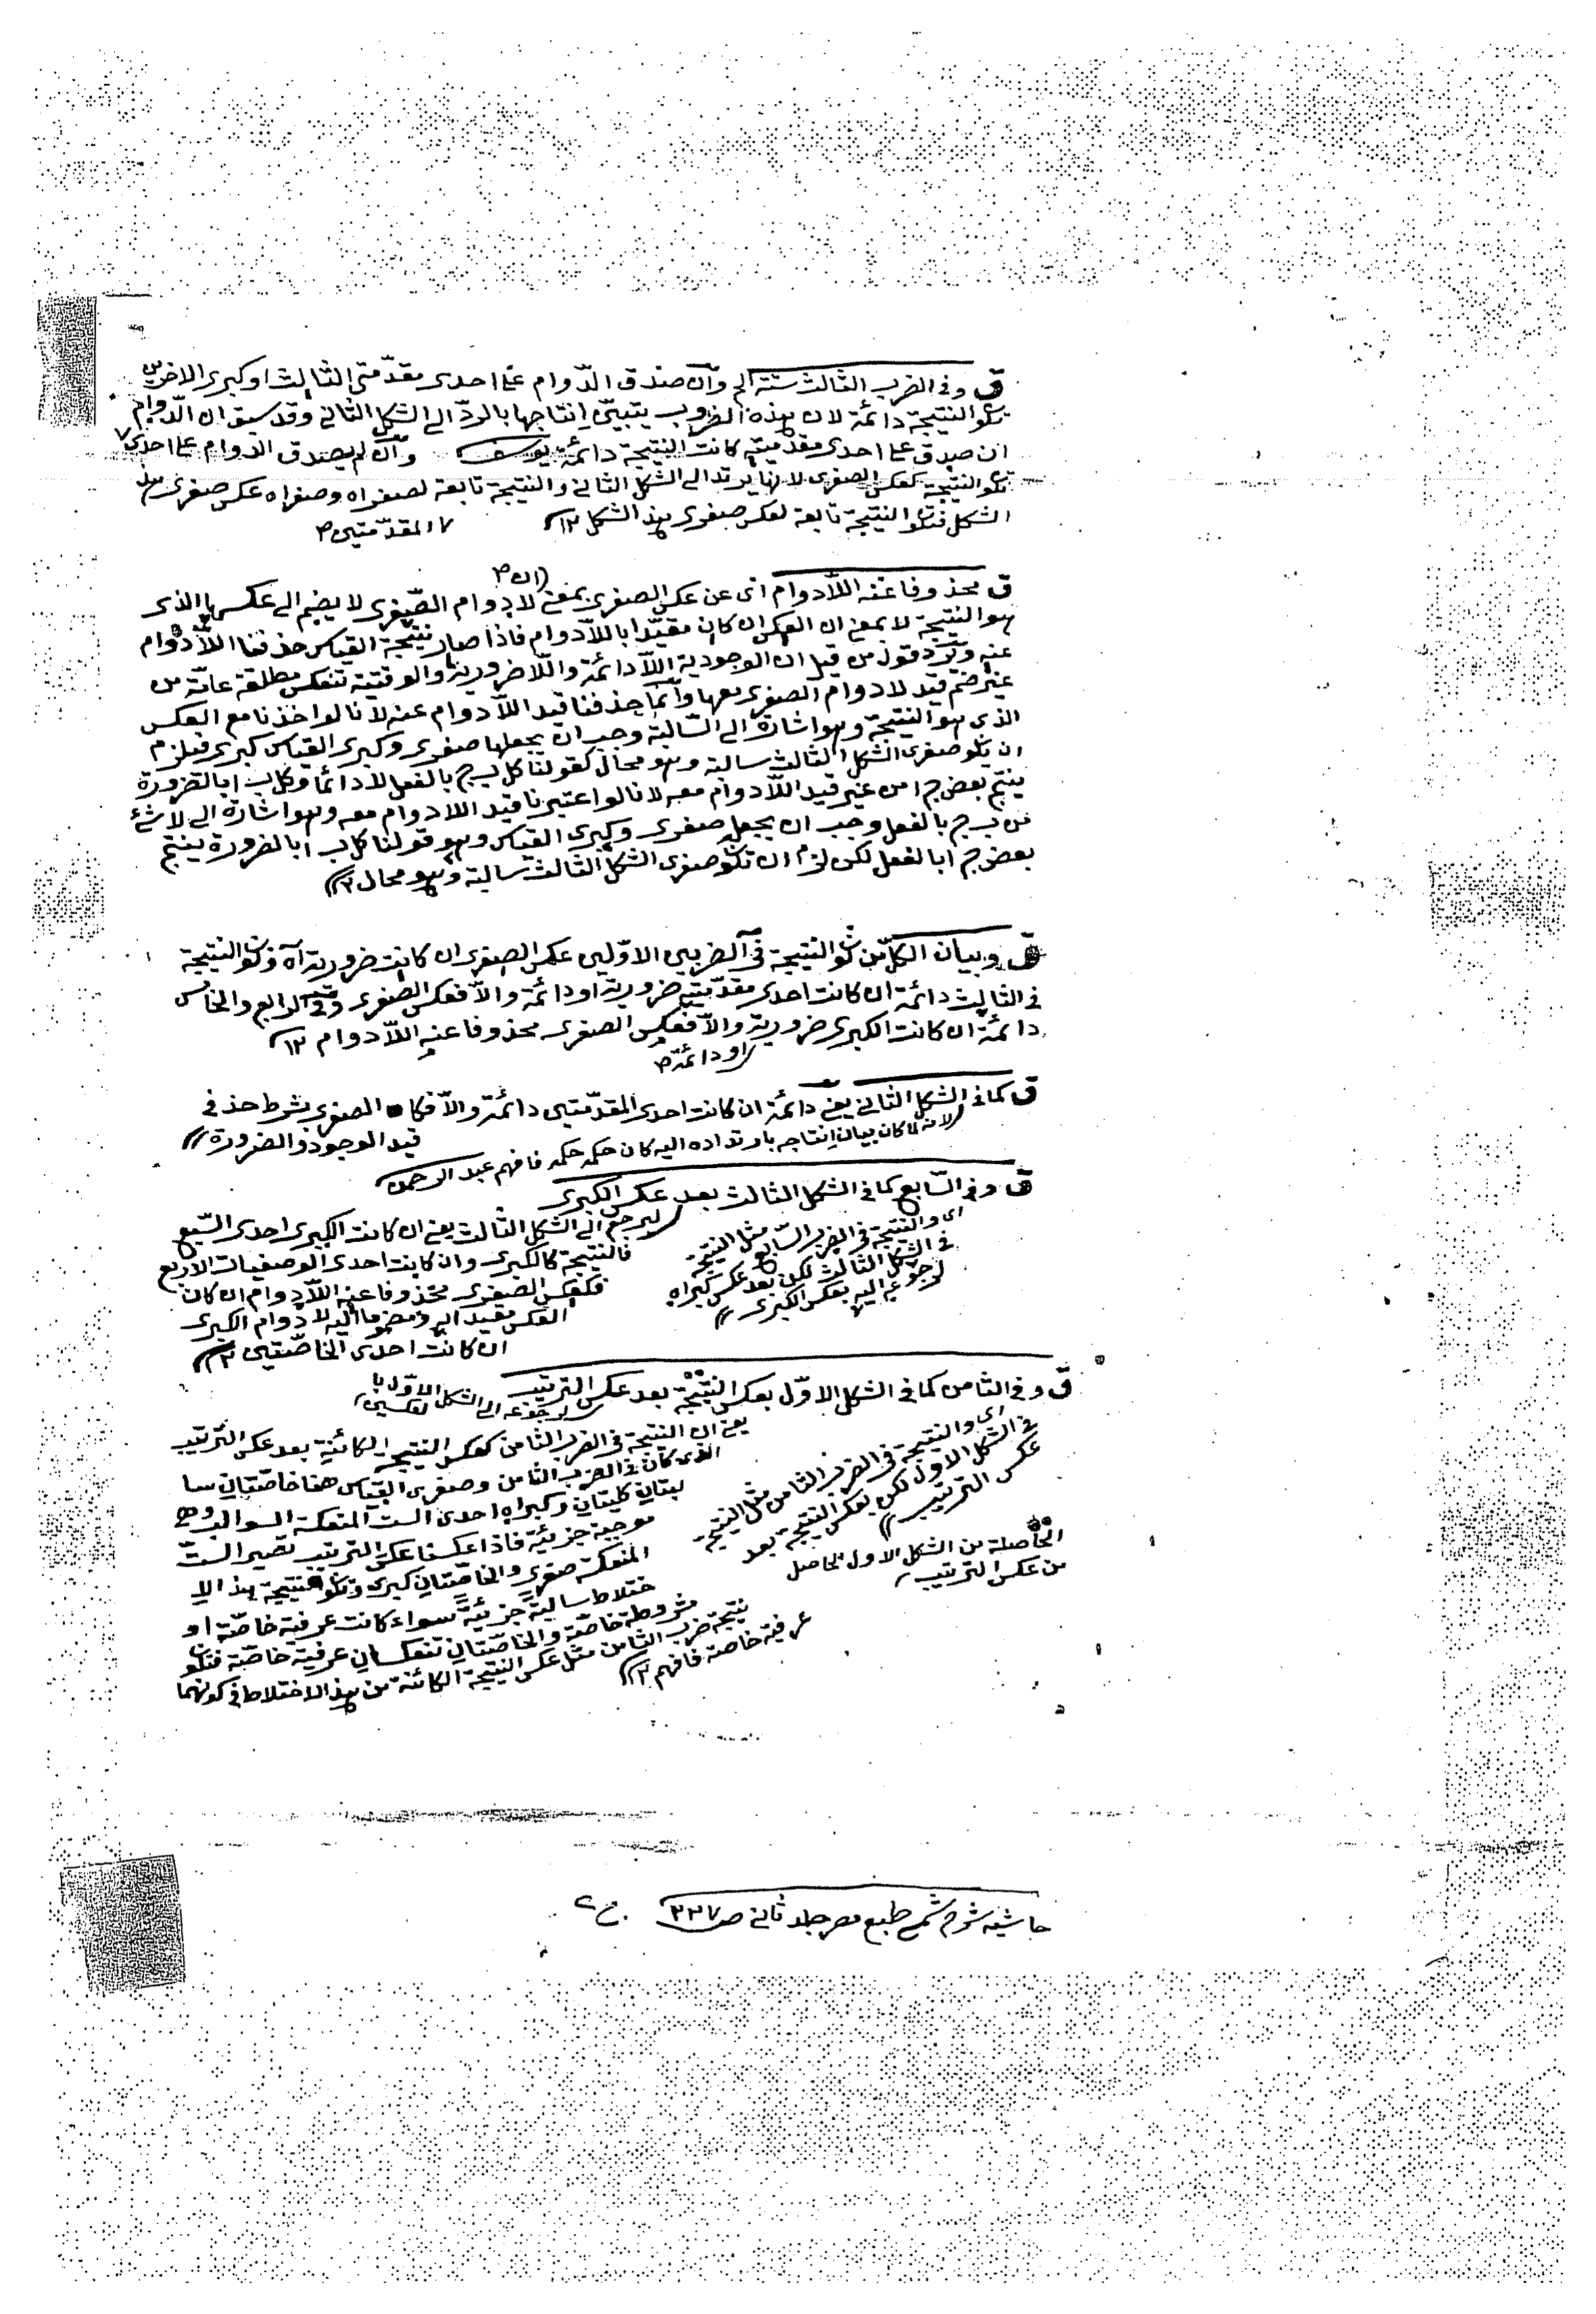 ق وفى الضرب الثالث ستة الخ وان صدق الدّوام على احدى مقدّمتى الثالث او كبرى الاخرين
تكو النتيجة دائمة لان هذه الضروب يتبيّن انتاجها بالردّ الى الشكل الثانى وقد سبق ان الدّوام
ان صدق على احدى مقدمتيه كانت النتيجة دائمة يوسف وان لم يصدق الدوام على احدى ٧
تكو النتيجة كعكس الصغرى لانها يرتد الى الشكل الثانى والنتيجة تابعة لصغراه وصغراه عكس صغرى هذا
الشكل فتكو النتيجة تابعة لعكس صغرى هذا الشكل ١٢
٧ المقدّمتين ص
ق محذوفا عنه اللّادوام اى عن عكس الصغرى بمعنى لادوام الصّغرى لا يضم الى عكسها الذى
(ان ص
هو النتيجة لا بمعنى ان العكس ان كان مقيّدا باللّادوام فاذا صار نتيجة القياس حذفنا اللّادوام
عنه ويردّ قول من قيل ان الوجودية اللّادائمة واللّاضرورية والوقتية تنعكس مطلقة عامّة من
غير ضم قيد لادوام الصغرى معها وانّما حذفنا قيد اللّادوام عنه لانا لو اخذنا مع العكس
الذى هو النتيجة وهو اشارة الى السّالبة وجب ان يجعلها صغرى وكبرى القياس كبرى فيلزم
ان يكو صغرى الشكل الثالث سالبة وهو محال كقولنا كل ب ج بالفعل لا دائما وكل ب ا بالضرورة
ينتج بعض ج ا من غير قيد اللّادوام معه لانا لو اعتبرنا قيد اللادوام معه وهو اشارة الى لا شئ
من ب ج بالفعل وجب ان يجعل صغرى وكبرى القياس وهو قولنا كل ب ا بالضرورة ينتج
بعض ج ا بالفعل لكن لزم ان تكو صغرى الشكل الثالث سالبة وهو محال ١٢
ق وبيان الكل من كون النتيجة فى الضربين الاوّلين عكس الصغرى ان كانت ضرورية آه وكون النتيجة
فى الثالث دائمة ان كانت احدى مقدّمتيه ضرورية او دائمة والّا فعكس الصغرى وفى الرابع والخامس
دائمة ان كانت الكبرى ضرورية والّا فعكس الصغرى محذوفا عنه اللّادوام ١٢
او دائمة ص
ق كما فى الشكل الثانى يعنى دائمة ان كانت احدى المقدّمتين دائمة والّا فكا الصغرى بشرط حذف
قيد الوجود والضرورة
لانه لما كان بيان انتاجه بارتداده اليه كان حكمه حكمه فافهم عبد الرحمن
ق وفى السّابع كما فى الشكل الثالث بعد عكس الكبرى
اى والنتيجة فى الضرب السّابع مثل النتيجة
فى الشكل الثالث لكن بعد عكس كبراه
لرجوعه اليه بعكس الكبرى
ليرجع الى الشكل الثالث يعنى ان كانت الكبرى احدى السّبع
فالنتيجة كالكبرى وان كانت احدى الوصفيات الاربع
فكعكس الصغرى محذوفا عنه اللّادوام ان كان
العكس مقيدا به ومضموما اليه لادوام الكبرى
ان كانت احدى الخاصّتين ١٢
ق وفى الثامن كما فى الشكل الاوّل بعكس النتيجة بعد عكس الترتيب
لرجوعه الى الشكل الاوّل با
لعكسين
اى والنتيجة فى الضرب الثامن مثل النتيجة
فى الشكل الاول لكن بعكس النتيجة بعد
عكس الترتيب
الحاصلة من الشكل الاول الحاصل
من عكس الترتيب
يعنى ان النتيجة فى الضرب الثامن كعكس النتيجة الكائنة بعد عكس الترتيب
الذى كان فى الضرب الثامن وصغرى القياس هنا خاصّتان سا
لبتان كليتان وكبراه احدى الست المنعكسة السوالب وهى
موجبة جزئية فاذا عكسنا عكس الترتيب تصير الست
المنعكسة صغرى والخاصّتان كبرى وتكو نتيجة هذا الا
ختلاط سالبة جزئية سواء كانت عرفية خاصّة او
مشروطة خاصّة والخاصّتان تنعكسان عرفية خاصّة فتكون
نتيجة ضرب الثامن مثل عكس النتيجة الكائنة من هذا الاختلاط فى كونهما
عرفية خاصة فافهم ١٢
حاشيه شرح شمسى طبع مصر جلد ثانى ص ٢٣٧